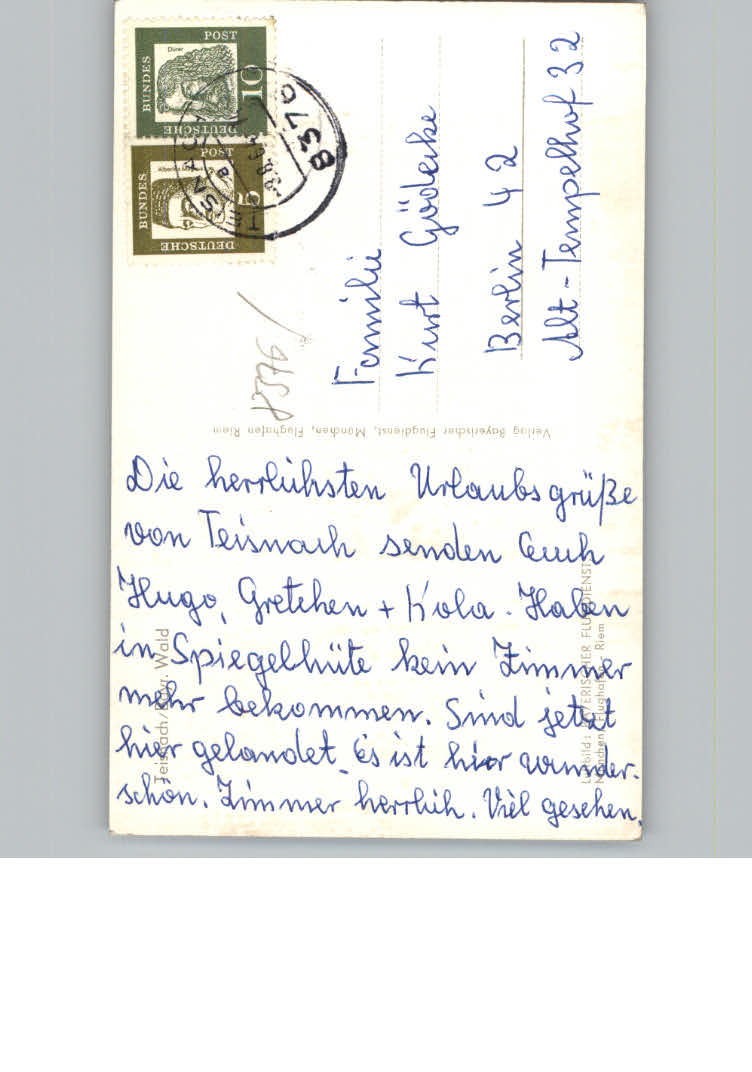 Die herrlichsten Urlaubsgrüße
von Teisnach senden Euch
Hugo, Gretchen + Kola. Haben
in Spiegelhüte kein Zimmer
mehr bekommen. Sind jetzt
hier gelandet. Es ist hier wunder-
schön. Zimmer herrlich. Viel gesehen.
Familie
Kurt Gödecke
Berlin 42
Alt-Tempelhof 32
DEUTSCHE BUNDESPOST
Dürer
10
DEUTSCHE BUNDESPOST
5
8376
TEISNACH
a
Verlag Bayerischer Flugdienst, München, Flughafen Riem
Teisnach/Bayr. Wald
Luftbild: BAYERISCHER FLUGDIENST
München - Flughafen - Riem